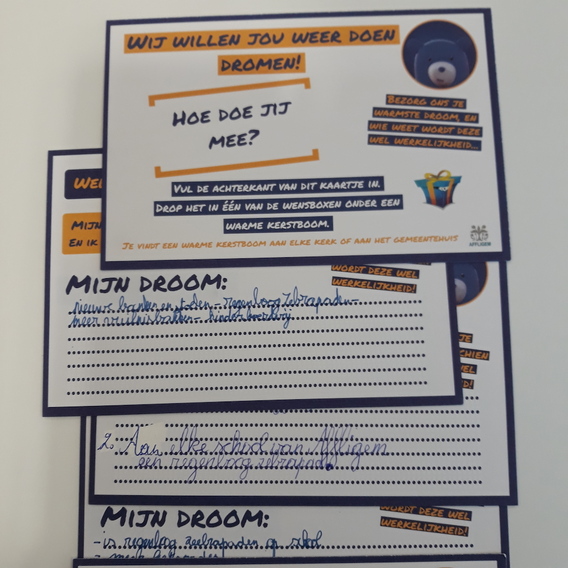 WIJ WILLEN JOU WEER DOEN
DROMEN!
HOE DOE JIJ
MEE?
BEZORG ONS JE
WARMSTE DROOM, EN
WIE WEET WORDT DEZE
WEL WERKELIJKHEID...
VUL DE ACHTERKANT VAN DIT KAARTJE IN.
DROP HET IN ÉÉN VAN DE WENSBOXEN ONDER EEN
WARME KERSTBOOM.
JE VINDT EEN WARME KERSTBOOM AAN ELKE KERK OF AAN HET GEMEENTEHUIS
AFFLIGEM
WEL
MIJN
EN IK
MIJN DROOM:
WORDT DEZE WEL
WERKELIJKHEID!
nieuwe banken en - regenboog zebrapaden -
meer vuilnisbakken -
JE
CHIEN
EL
D!
2. Aan elke school van Affligem
een regenboog zebrapad.
MIJN DROOM:
WORDT DEZE WEL
WERKELIJKHEID!
- is regenboog zeebrapaden op school
- meer